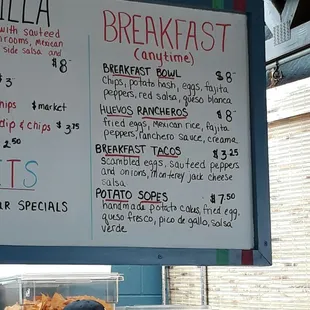 ILLA
with sauteed
rooms, mexican
side salsa
$8-
3-
hips $market
dip & chips $3.75
2.50
TS
UR SPECIALS
BREAKFAST
(anytime)
BREAKFAST BOWL $8-
Chips, potato hash, eggs, fajita
peppers, red salsa, queso blanca
HUEVOS RANCHEROS $8-
fried eggs, Mexican rice, fajita
peppers, ranchero sauce, creama
BREAKFAST TACOS $3.25
Scambled eggs, sauteed peppers
and onions, monterey jack cheese
salsa
POTATO SOPES $7.50
handmade potato cakes, fried egg,
queso fresco, pico de gallo, salsa
verde